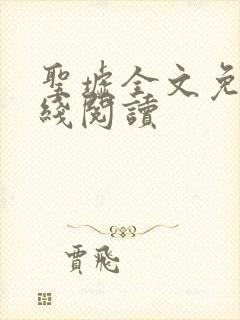 聖墟全文免
綫閱讀
賈飛